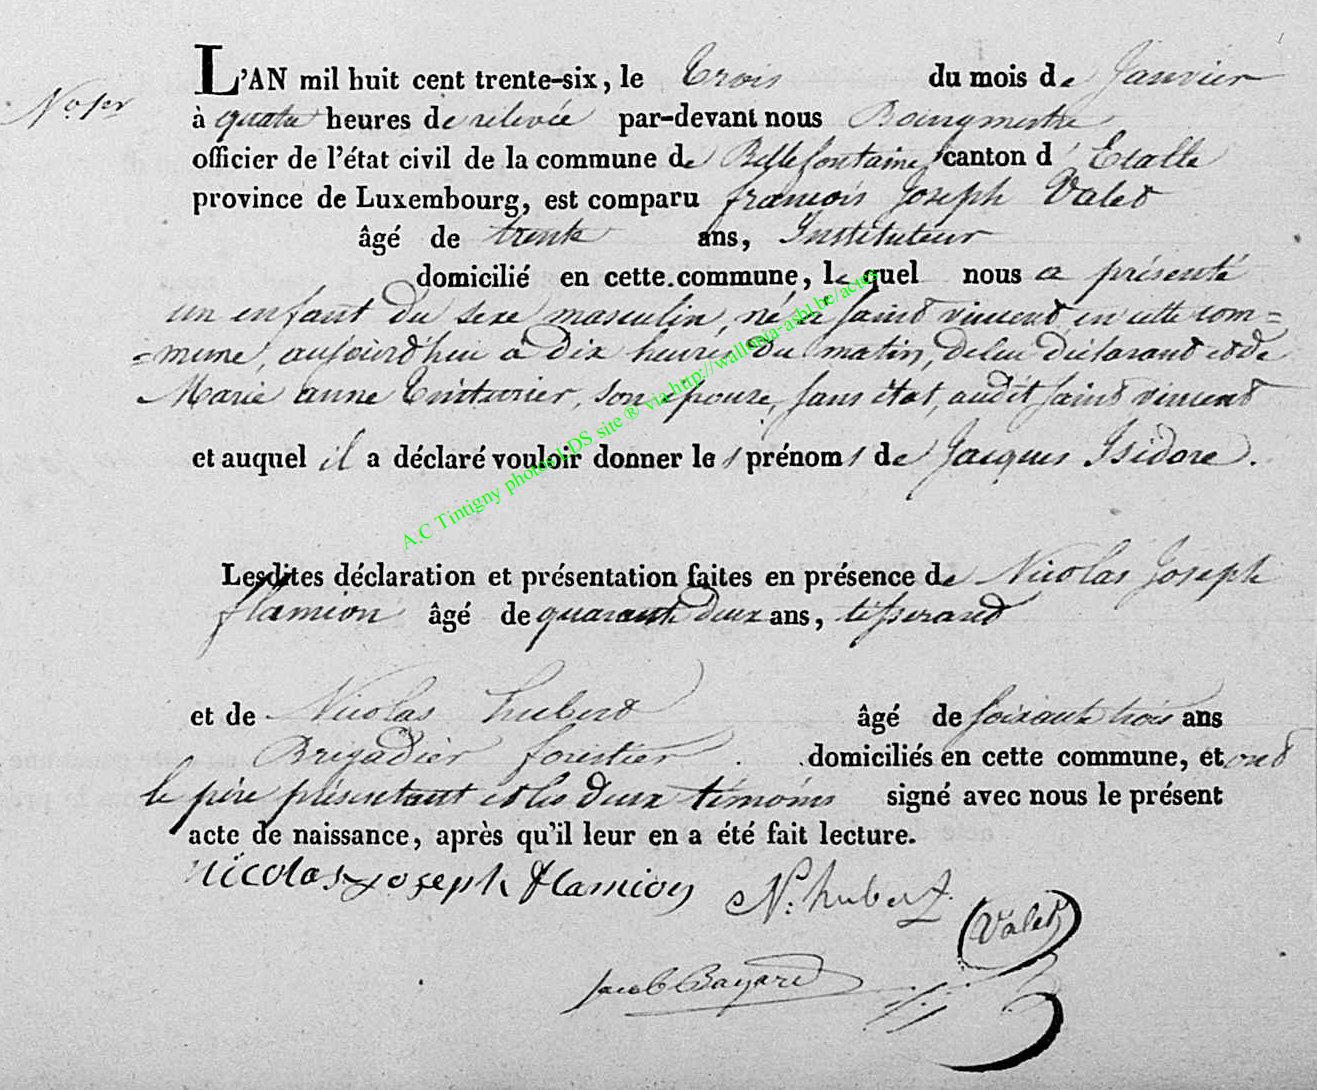 No. 1er
L'AN mil huit cent trente-six, le Trois du mois de Janvier
à quatre heures de relevée par-devant nous Bourgmestre
officier de l'état civil de la commune de Bellefontaine canton d' Etalle
province de Luxembourg, est comparu françois Joseph Valet
âgé de trente ans, Instituteur
domicilié en cette commune, le quel nous a présenté
un enfant du sexe masculin, né à saint vincent en cette com=
=mune, aujourd'hui à dix heures du matin, de lui déclarant et de
Marie anne son épouse, sans état, audit saint vincent
et auquel il a déclaré vouloir donner les prénoms de Jacques Isidore.
A.C Tintigny photos LDS site ® via http://wallonia-asbl.be/actes
Lesdites déclaration et présentation faites en présence de Nicolas Joseph
flamion âgé de quarante deux ans, tisserand
et de Nicolas hubert âgé de soixante trois ans
Brigadier forestier. domiciliés en cette commune, et ont
le père présentant et les deux témoins signé avec nous le présent
acte de naissance, après qu'il leur en a été fait lecture.
Nicolas joseph flamion N. hubert Valet
Jacob Bayard